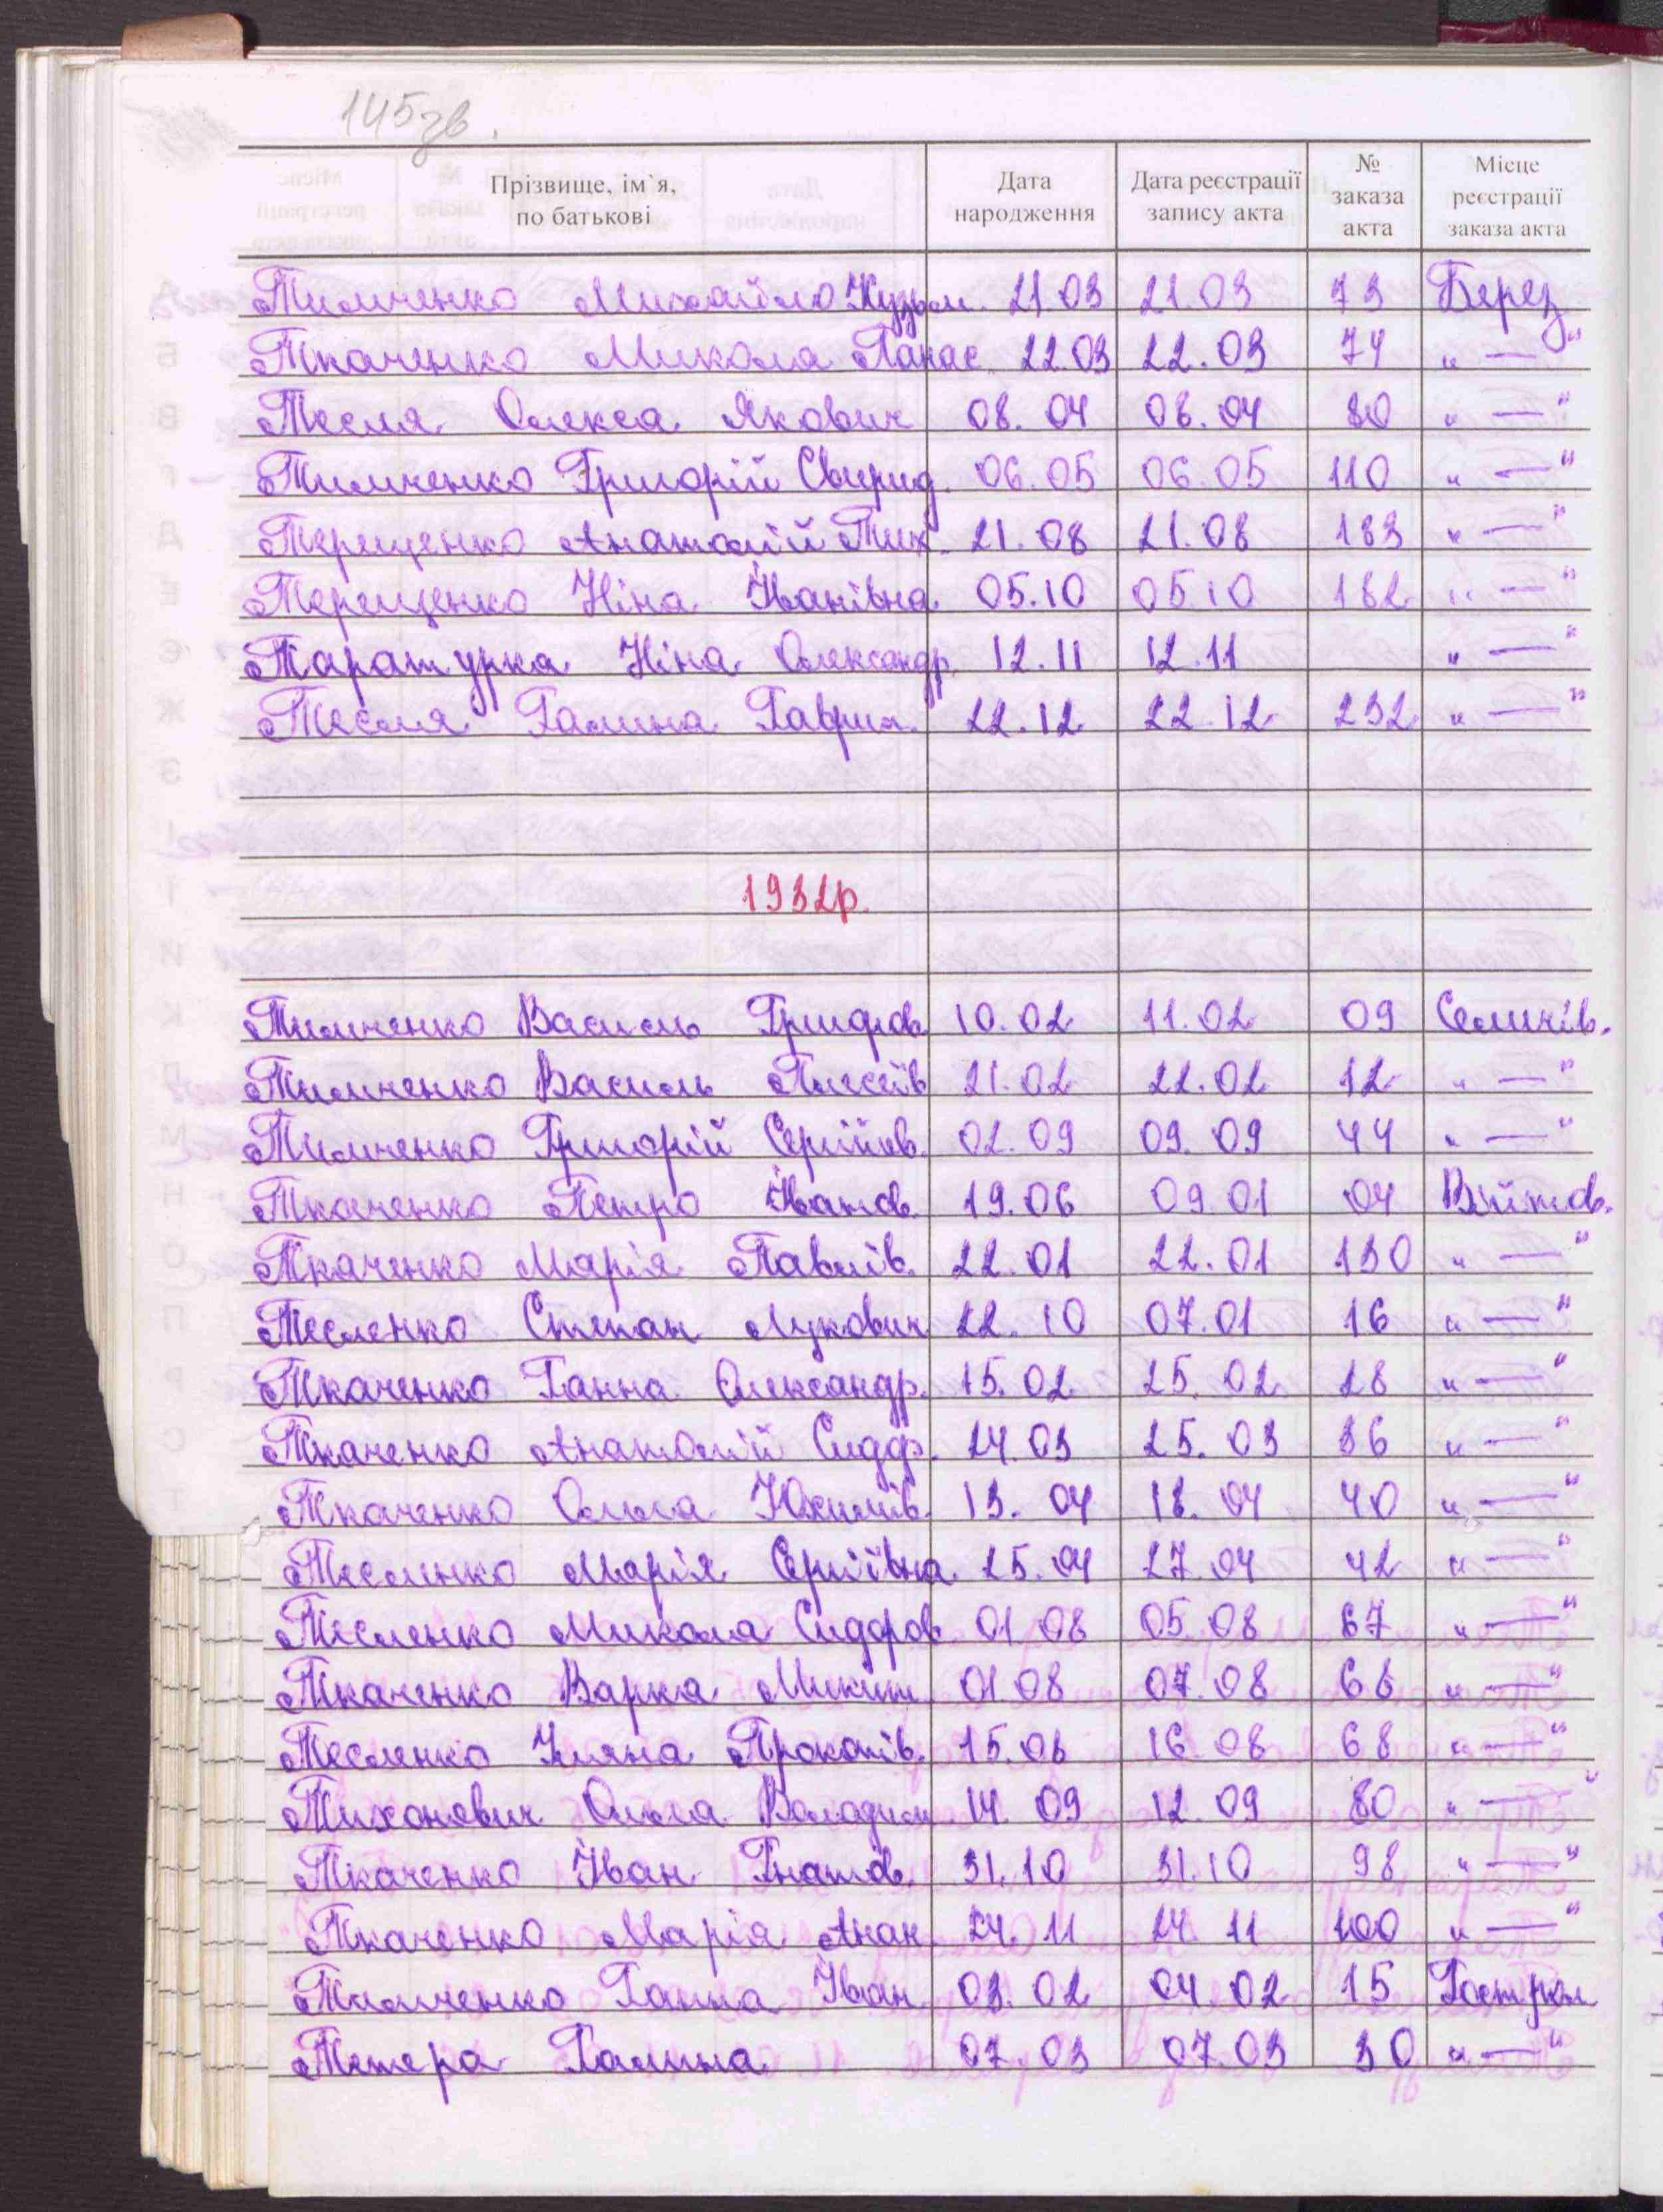 145зв.
Прізвище, ім`я, по батькові | Дата народження | Дата реєстрації запису акта | № заказа акта | Місце реєстрації заказа акта
Тимченко Михайло Кузьм. 21.03 21.03 73 Берез
Ткаченко Микола Панас 22.03 22.03 74 "—"
Тесля Олекса Якович 08.04 08.04 80 "—"
Тимченко Григорій Свирид. 06.05 06.05 110 "—"
Терещенко Анатолій Тих. 21.08 21.08 183 "—"
Терещенко Ніна Іванівна 05.10 05.10 182 "—"
Таратурка Ніна Олександр. 12.11 12.11 "—"
Тесля Галина Гаврил. 22.12 22.12 232 "—"
1932р.
Тимченко Василь Григоров. 10.02 11.02 09 Семинів.
Тимченко Василь 21.02 22.02 12 "—"
Тимченко Григорій Сергійов. 02.09 09.09 44 "—"
Ткаченко Петро Іванов. 19.06 09.01 04 Війтов.
Ткаченко Марія Павлів. 22.01 22.01 130 "—"
Тесленко Степан Лукович 22.10 07.01 16 "—"
Ткаченко Ганна Олександр. 15.02 25.02 28 "—"
Ткаченко Анатолій Сидор. 24.03 25.03 36 "—"
Ткаченко Ольга Юхимів. 13.04 18.04 40 "—"
Тесленко Марія Сергіївна 25.04 27.04 42 "—"
Тесленко Микола Сидоров 01.08 05.08 67 "—"
Ткаченко Варка Микит 01.08 07.08 66 "—"
Тесленко Уляна Прокопів. 15.08 16.08 68 "—"
Тихонович Ольга Володим 14.09 12.09 80 "—"
Ткаченко Іван Гнатов. 31.10 31.10 98 "—"
Ткаченко Марія Анан 24.11 24.11 100 "—"
Тимченко Ганна Іван 03.02 04.02 15
Тетера Галина 07.03 07.03 30 "—"